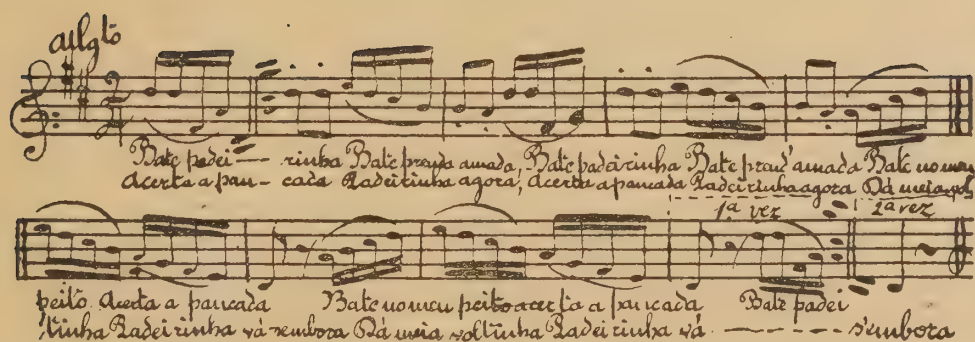 Allgto
Bate padei — rinha Bate prenda amada, Bate padeirinha Bate prend'amada Bate no meu
Acerta a pan — cada Padeirinha agora, Acerta a pancada Padeirinha agora Dá meia vol
1ª vez 2ª vez
peito Acerta a pancada Bate no meu peito acerta a pancada Bate padei
tinha Padeirinha vá-sembora Dá meia voltinha Padeirinha vá - - - - - s'embora